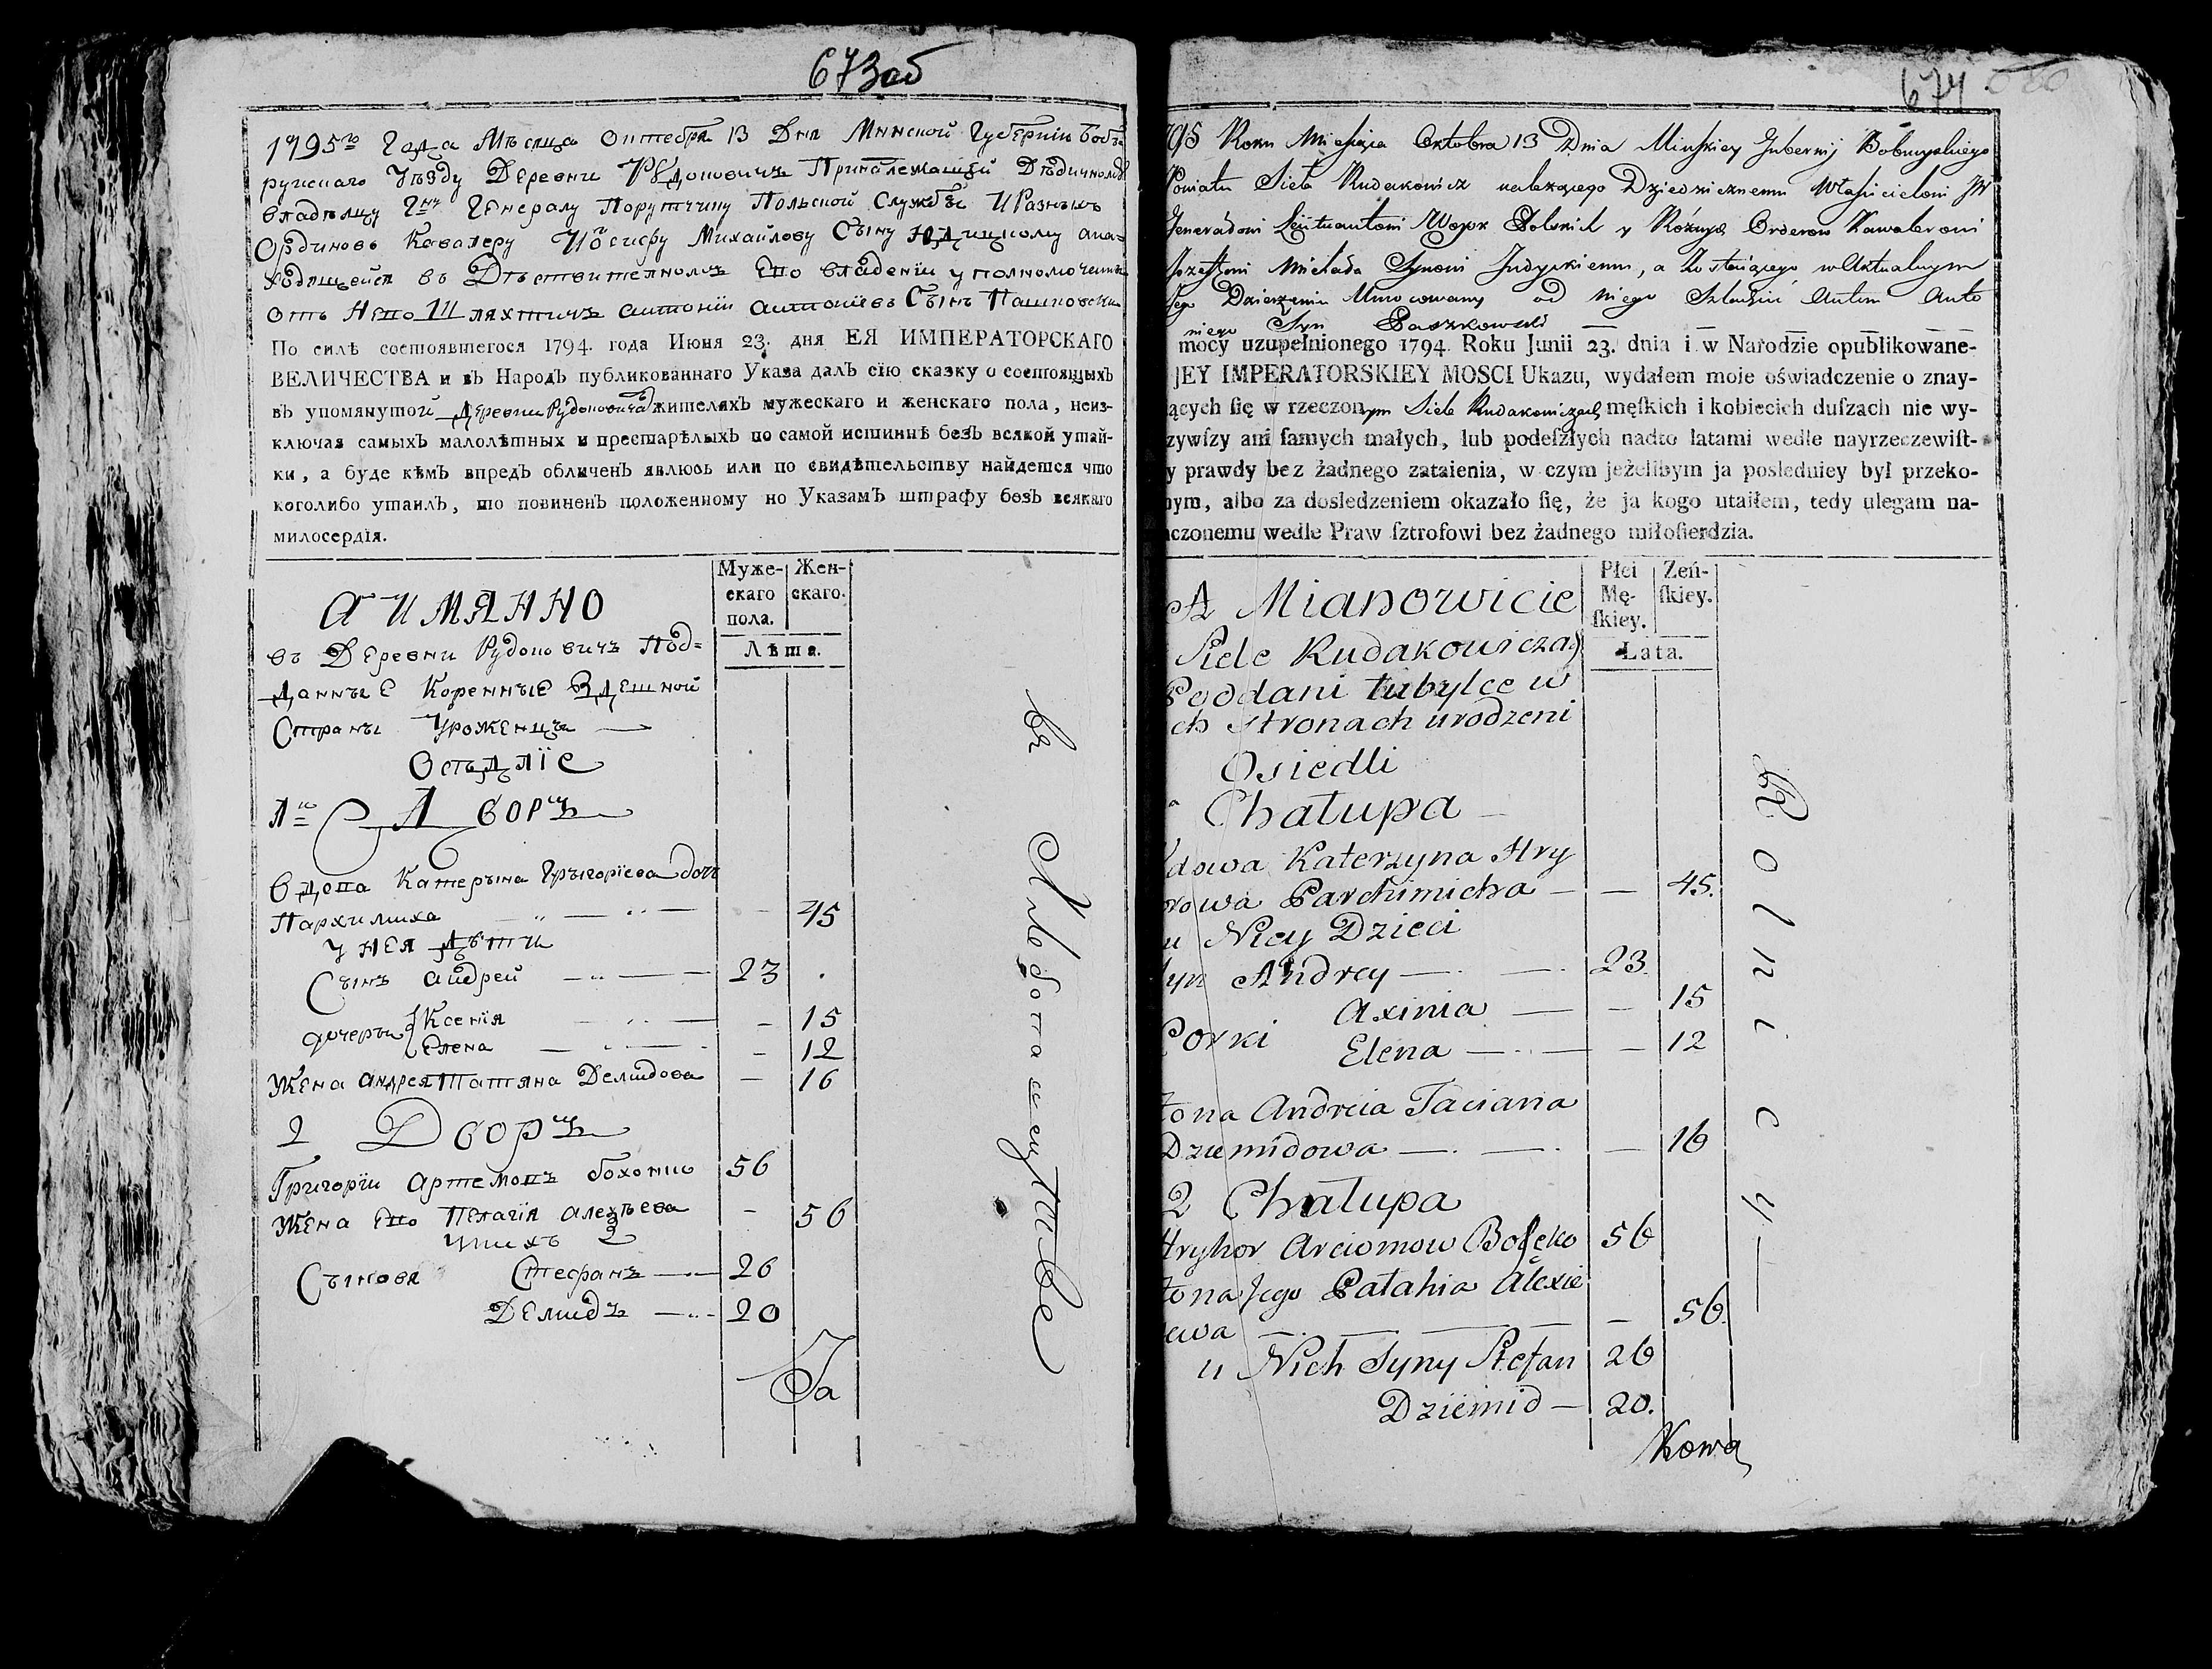 673об
1795го Года Мѣсяца Октебря 13 Дня Минской Губернїи Бобъ
руискаго Уѣзду Деревни Рудоковичъ Приналежащей Дѣдичному
владѣлцу Гну Генералу Порутчику Польской Службы И Разныхъ
Ординовъ Кавалеру Иосифу Михайлову Сыну Юдицкому а на=
ходящейся въ Дѣствителномъ Его владенїи уполномоченъ
отъ Него Шляхтичъ антонїи антонїевъ Сынъ Пашковски
По силѣ состоявшегося 1794. года Июня 23. дня ЕЯ ИМПЕРАТОРСКАГО
ВЕЛИЧЕСТВА и въ Народъ публикованнаго Указа далъ сїю сказку о состоящыхъ
въ упомянутой Деревни Рудоковичахъ жителяхъ мужескаго и женскаго пола, неиз-
ключая самыхъ малолѣтныхъ и престарѣлыхъ по самой истиннѣ безъ всякой утай-
ки, а буде кѣмъ впредь обличенъ явлюсь или по свидѣтельству найдется что
коголибо утаилъ, то повиненъ положенному по Указамъ штрафу безъ всякаго
милосердїя.
Муже-
скаго
пола.
Жен-
скаго.
Лѣта.
А ИМЯННО
въ Деревни Рудоковичъ Под=
данные Коренные Здешной
Страны Уроженцы
Осѣдлїе
1й Дворъ
вдова Катерына Грыгорїева доч
Пархимиха 45
У нея Дѣти
Сынъ андрей 23
дочеры Ксенїя 15
Елена 12
Жена андрея Татяна Демидова 16
2 Дворъ
Григорїи Артемовъ 56
Жена Его Пелагїя алеѯѣева 56
у нихъ
Сыновя Стефанъ 26
Демидъ 20
674
95 Roku Miesiąca Oktobra 13 Dnia Minskiey Gubernij Bobruyskiego
Powiatu Sieła Rudakowicz należącego Dziedzicznemu Właścicielowi JW
Jenerałowi Leitnantowi Woysk Polskich y Rożnych Orderow Kawalerowi
Jozefowi Michała Synowi Judyckiemu, a Zostaiącego w Aktualnym
iego Dzierżeniu Umocowany od niego Szlachcic Anton Anto
niego Syn Paszkowski
mocy uzupełnionego 1794. Roku Junii 23. dnia i w Narodzie opublikowane-
JEY IMPERATORSKIEY MOSCI Ukazu, wydałem moie oświadczenie o znay-
ących ſię w rzeczonym Siele Rudakowiczach męſkich i kobiecich duſzach nie wy-
zywſzy ani ſamych małych, lub podeſzłych nadto latami wedle nayrzeczewiſt-
y prawdy bez żadnego zataienia, w czym jeżelibym ja posledniey był przeko-
nym, albo za dosledzeniem okazało ſię, że ja kogo utaiłem, tedy ulegam na-
czonemu wedle Praw ſztrofowi bez żadnego miłoſierdzia.
Płci
Mę-
ſkiey.
Zeń-
ſkiey.
Lata.
A Mianowicie
Siele Rudakowiczach
Poddani tubylce w
ch stronach urodzeni
Osiedli
Chałupa
dowa Katerzyna Hry
rowa Parchimicha 45.
u Niey Dzieci
Syn Andrey 23.
Axinia 15
Corki
Elena 12
Żona Andreia Taciana
Dziemidowa 16
2 Chałupa
Hryhor Arciomow 56
Żona Jego Pałahia Alexie
ewa 56.
u Nich Syny Stefan 26
Dziemid 20.
Rolnicy